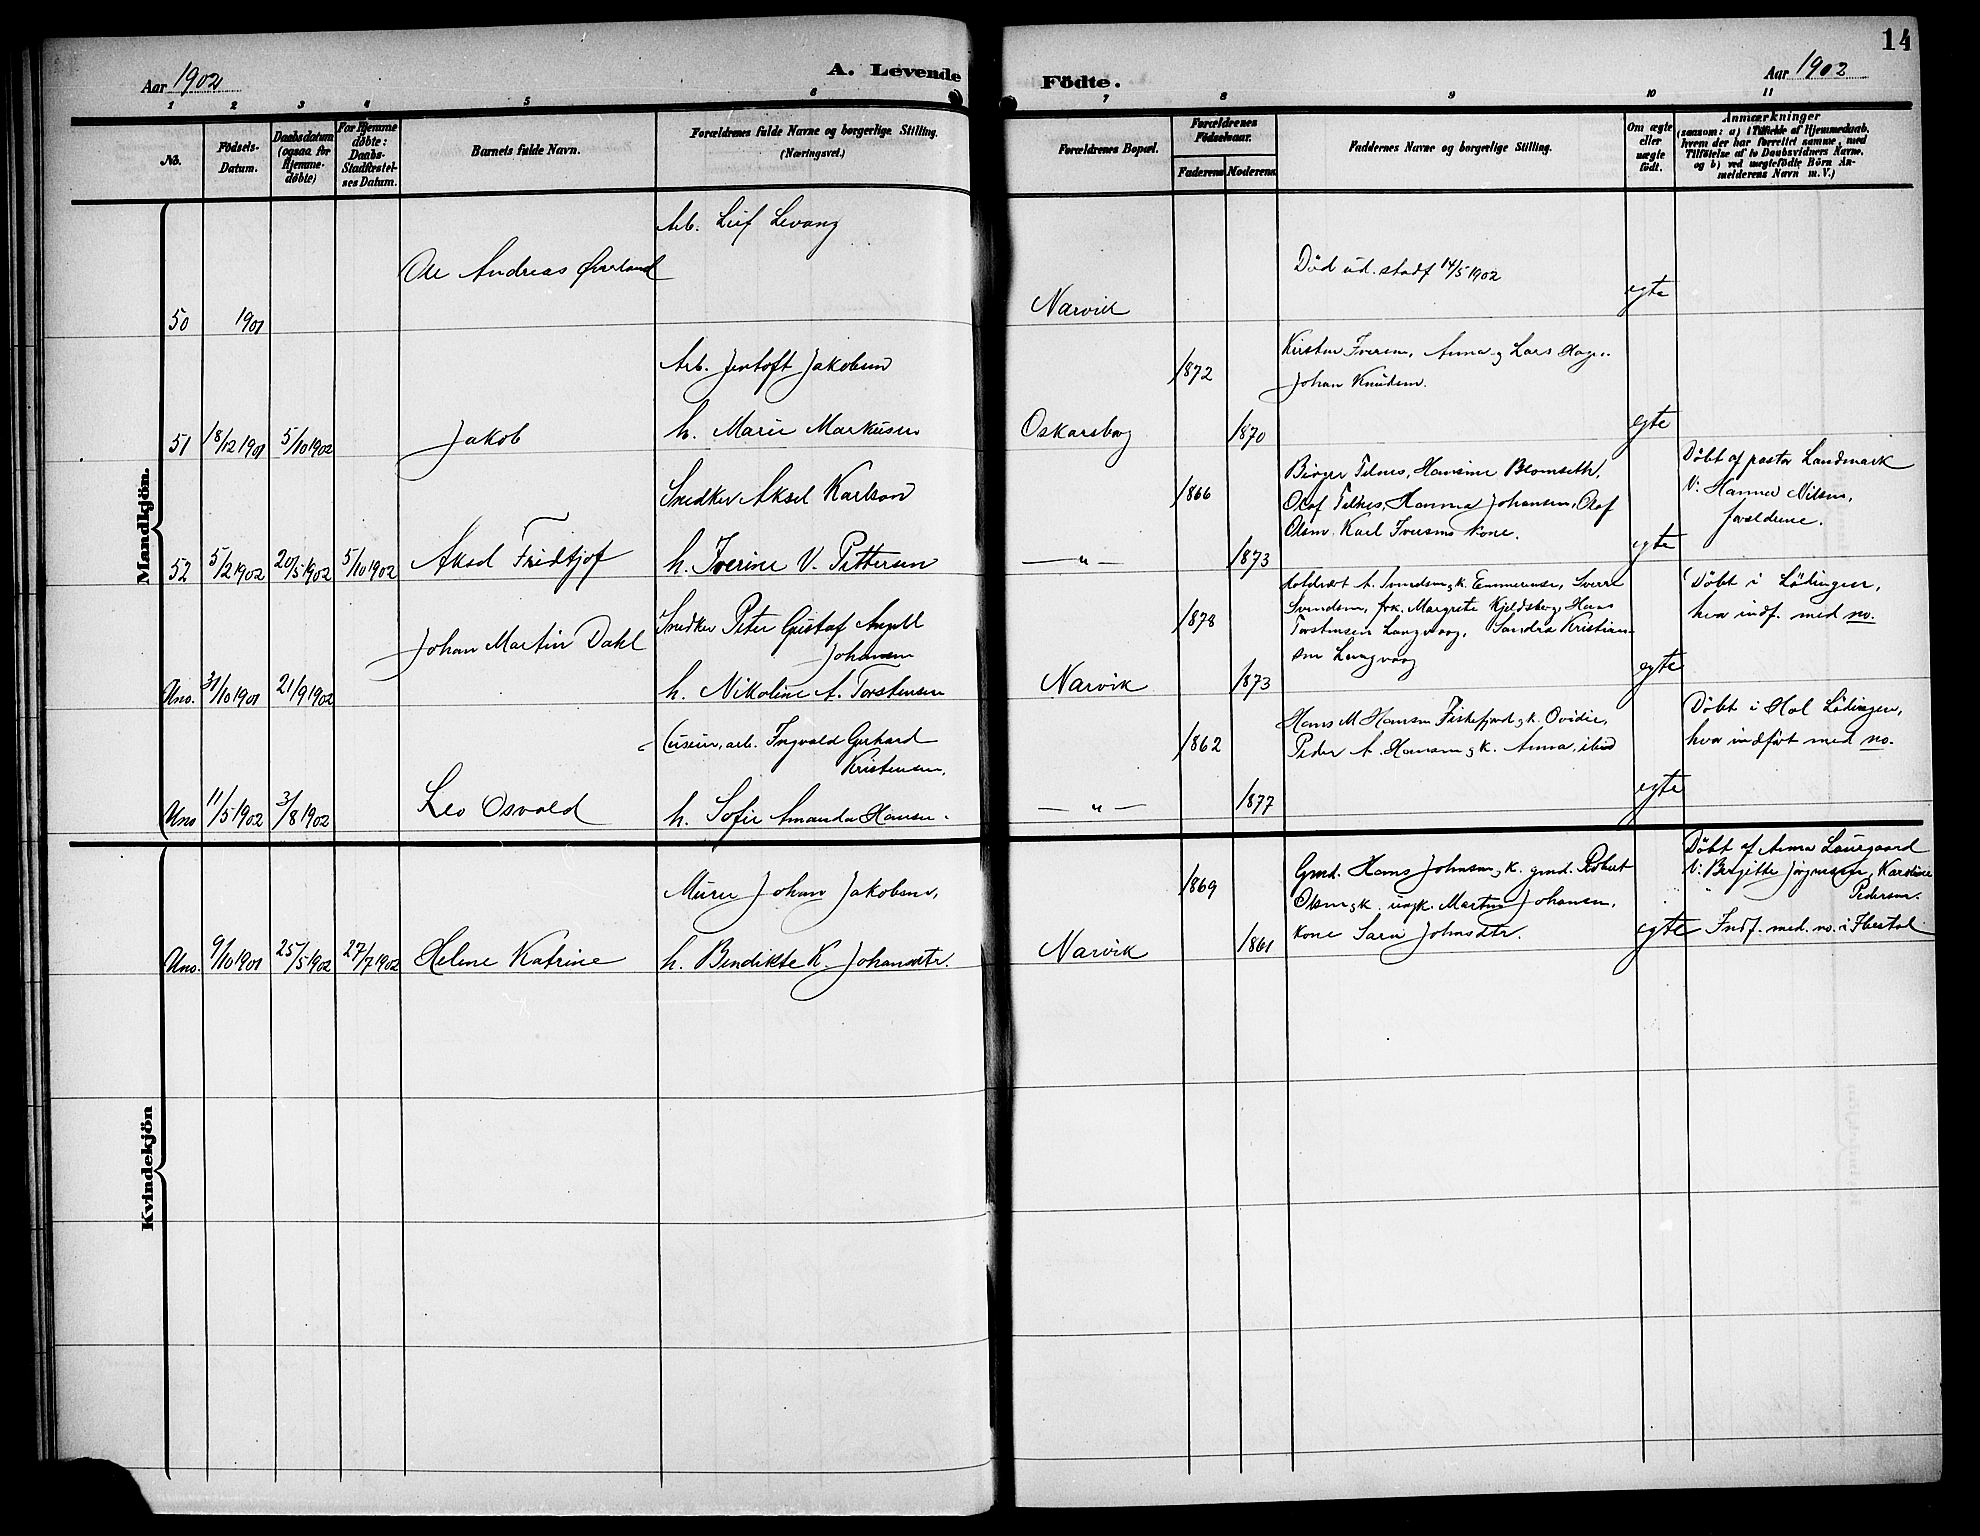 14
Aar 1902
A. Levende
Födte.
Aar 1902
1 2 3 4 5 6 7 8 9 10 11
No.
Födsels-
Datum.
Daabsdatum
(ogsaa for
Hjemme-
döbte)
For Hjemme
döbte:
Daabs-
Stadfæstel-
ses Datum.
Barnets fulde Navn.
Forældrenes fulde Navne og borgerlige Stilling.
(Næringsvei.)
Forældrenes Bopæl.
Forældrenes
Födselsaar.
Faderens
Moderens
Faddernes Navne og borgerlige Stilling.
Om ægte
eller
uægte
födt.
Anmærkninger
(saasom: a) i Tilfælde af Hjemmedaab,
hvem der har forrettet samme, med
Tilföielse af to Daabsvidners Navne,
og b) ved uægtefödte Börn An-
melderens Navn m. V.)
Mandkjön.
Arb. Leif Levang
Ole Andreas Överland
Död ud. stadf 14/5 1902
50 1901
Narvik
egte
Arb. Jentoft Jakobsen
1872
Kirsten Iversen, Anna og Lars Hage.
Johan Knudsen.
51 18/12 1901 5/10 1902
Jakob
h. Marie Markusen
Oskarsborg
1870
egte
Snedker Aksel Karlson
1866
Birger Felnes, Hansine Blomseth,
Olaf Felnes, Hanna Johansen, Olaf
Olsen. Karl Iversens Kone.
Döbt af pastor Landmark
V: Hanna Nilsen,
forældrene.
52 5/2 1902 20/5 1902 5/10 1902
Aksel Fridtjof
h. Iverine V. Pettersen
— " —
1873
egte
Snedker Peter Gustaf Angell
Johansen
Johan Martin Dahl
1878
A. Svendsen og k. Emmerense, Sverre
Svendsen, frk. Margrete Kjeldsberg, Hans
Torstensen Langvaag, Sandra Kristian-
sen Langvaag
Döbt i Lödingen,
hvor indf. med no.
Uno. 31/10 1901 21/9 1902
h. Nikoline A. Torstensen
Narvik
1873
egte
arb. Ingvald Gerhard
Kristensen,
1862
Hans M Hansen Fiskefjord og k. Ovidie,
Peder A. Hansen og k. Anna, ibid
Döbt i Hol Lödingen,
hvor indfört med no.
Uno 11/5 1902 3/8 1902
Leo Osvald
h. Sofie Amanda Hansen.
— " —
1877
egte
Kvindekjön
Murer Johan Jakobsen,
1869
Gmd. Hans Johnsen og k. gmd. Robert
Olsen og k. ungk. Martin Johansen,
Kone Sara Johnsdtr.
Döbt af Anna Laurgaard
V: Bergitte Jörgensen, Karoline
Pedersen.
Indf. med. no. i Ibestad
Uno. 9/10 1901 25/5 1902 27/7 1902
Helene Katrine
h. Bendikte K. Johansdtr.
Narvik
1861
egte